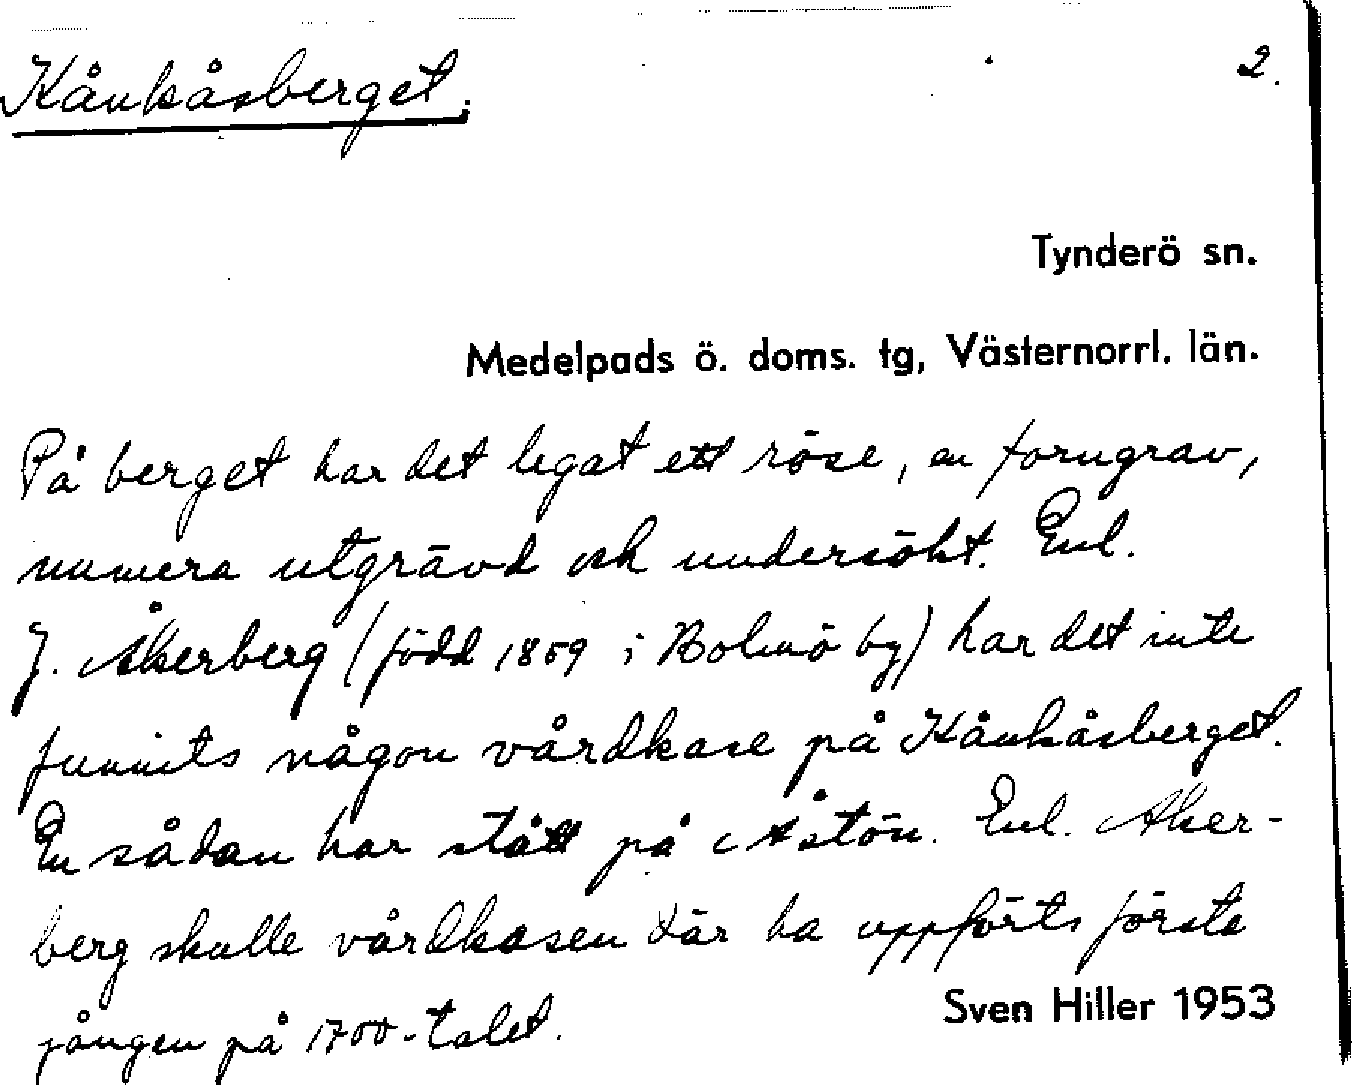 Kånkåsberget.
2.
Tynderö sn.
Medelpads ö. doms. tg, Västernorrl. län.
På berget har det legat ett röse, en forngrav,
numera utgrävd och undersökt. Enl.
J. Åkerberg (född 1859 i Bolmö by) har det inte
funnits någon vårdkase på Kånkåsberget.
En sådan har stått på Åstön. Enl. Åker-
berg skulle vårdkasen där ha uppförts första
gången på 1700-talet.
Sven Hiller 1953